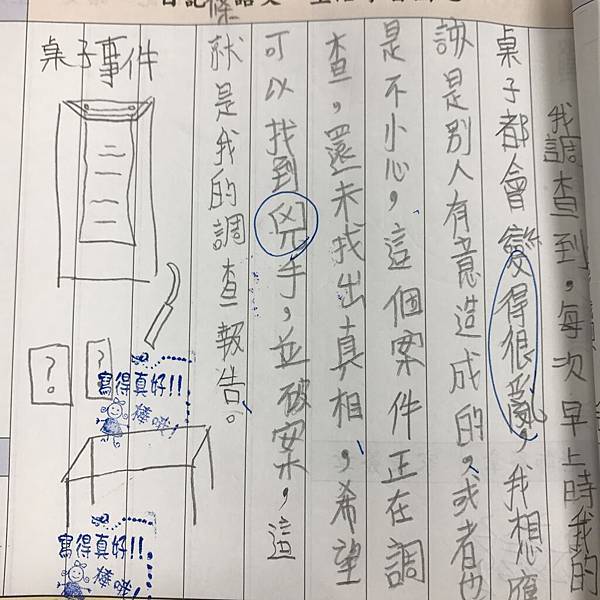 我調查到，每次早上時我的
桌子都會變得很亂，我想應
該是別人有意造成的，或者也
是不小心，這個案件正在調
查，還未找出真相，希望
可以找到兇手，並破案，這
就是我的調查報告。
桌子事件
?
?
寫得真好!!
棒呦!
寫得真好!!
棒呦!